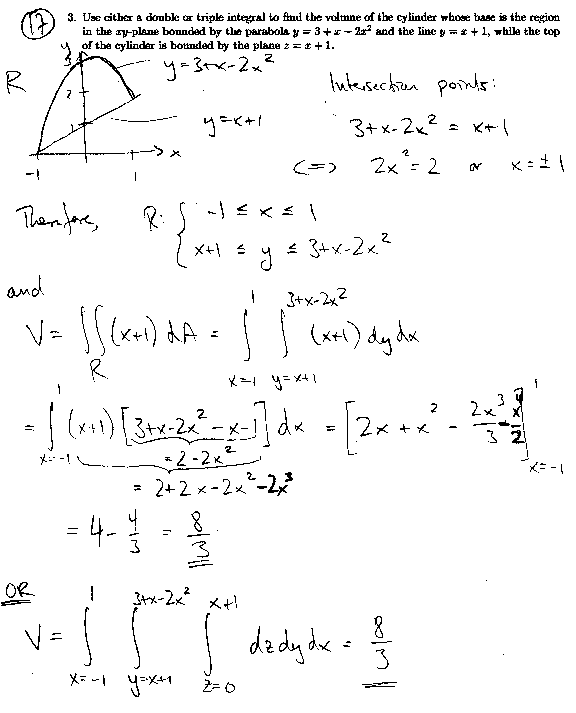 17
3. Use either a double or triple integral to find the volume of the cylinder whose base is the region
in the xy-plane bounded by the parabola y = 3 + x − 2x² and the line y = x + 1, while the top
of the cylinder is bounded by the plane z = x + 1.
R
y
3
2
1
-1
1
x
y=3+x-2x²
y=x+1
Intersection points:
3+x-2x² = x+1
<=> 2x²=2 or x=±1
Therefore, R: { -1 ≤ x ≤ 1
x+1 ≤ y ≤ 3+x-2x²
and
V = ∬_R (x+1) dA = ∫_{x=-1}^{1} ∫_{y=x+1}^{3+x-2x²} (x+1) dy dx
= ∫_{x=-1}^{1} (x+1) [3+x-2x²-x-1] dx = [2x + x² - 2x³/3 - x⁴/2]_{x=-1}^{1}
= 2-2x²
= 2+2x-2x²-2x³
= 4 - 4/3 = 8/3
OR
V = ∫_{x=-1}^{1} ∫_{y=x+1}^{3+x-2x²} ∫_{z=0}^{x+1} dz dy dx = 8/3